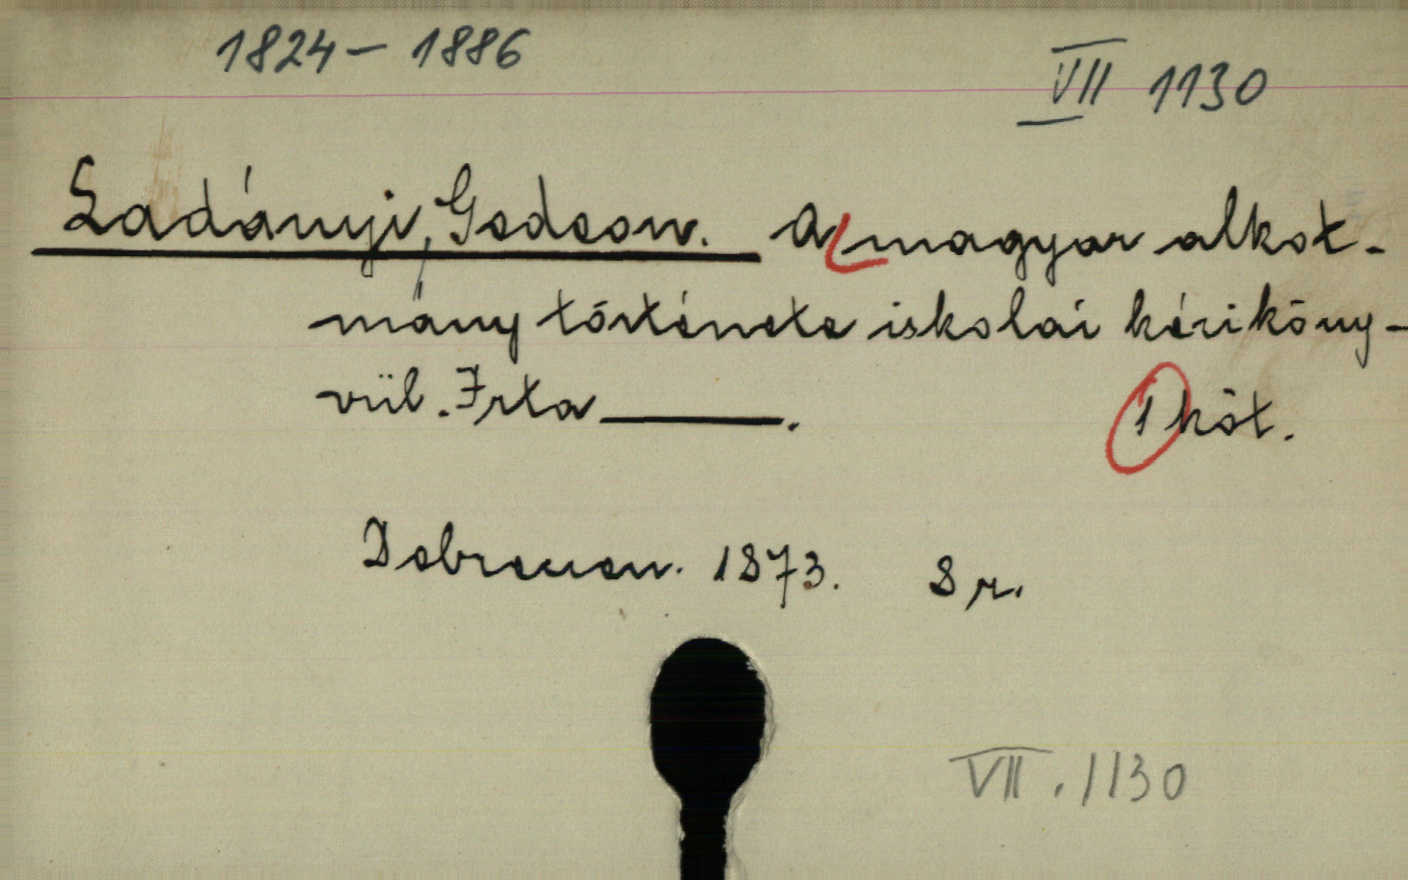 1824 – 1886
VII 1130
Ladányi, Gedeon. A magyar alkot-
mány története iskolai kéziköny-
vül. Irta ———.
1 köt.
Debrecen. 1873. 8 r.
VII. 1130